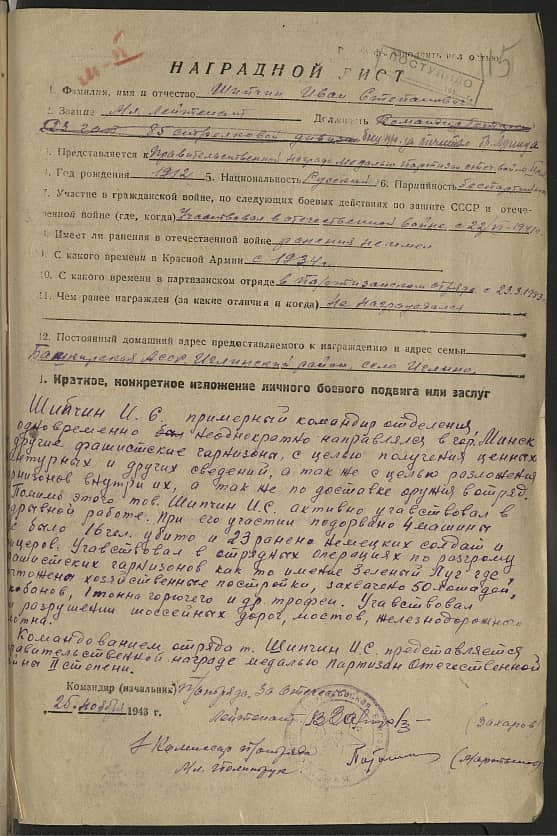 15
ПОСТУПИЛО
НАГРАДНОЙ ЛИСТ
1. Фамилия, имя и отчество Шипчин Иван Степанович
2. Звание Мл. Лейтенант Должность
85 стрелковой
3. Представляется к Правительственной награде медалью Партизан отечвойны
4. Год рождения 1912 5. Национальность Русский 6. Партийность беспартийный
7. Участие в гражданской войне, по следующих боевых действиях по защите СССР и отече-
ственной войне (где, когда) Учавствовал в отечественной войне с 22/VI-1941г.
8. Имеет ли ранения в отечественной войне ранения не имел
9. С какого времени в Красной Армии с 1934г.
10. С какого времени в партизанском отряде в партизанском отряде с 23.3.1943
11. Чем ранее награжден (за какие отличия и когда) Не награждался
12. Постоянный домашний адрес предоставляемого к награждению и адрес семьи
Башкирская Асср, Иглинский район, село Иглино.
I. Краткое, конкретное изложение личного боевого подвига или заслуг
Шипчин И.С. примерный командир отделения,
одновременно неоднократно направлялся в гор. Минск
другие фашистские гарнизоны, с целью получения ценных
агентурных и других сведений, а так же с целью разложения
гарнизонов внутри их, а так же по доставке оружия в отряд.
Помимо этого тов. Шипчин И.С. активно учавствовал в
подрывной работе. При его участии подорвано 4 машины
было 16 чел. убито и 23 ранено немецких солдат и
офицеров. Учавствовал в отрядных операциях по разгрому
фашистских гарнизонов как то имение Зеленый Луг где
уничтожены хозяйственные постройки, захвачено 50 лошадей,
кабанов, 1 тонна горючего и др. трофеи. Учавствовал
в разрушении шоссейных дорог, мостов, железнодорожного
полотна.
Командованием отряда т. Шипчин И.С. представляется
правительственной награде медалью Партизан Отечественной
войны II степени.
Командир (начальник) П/отряда За Отечество
25 ноября 1943 г. Лейтенант (Захаров)
Комиссар П/отряда
Мл. политрук